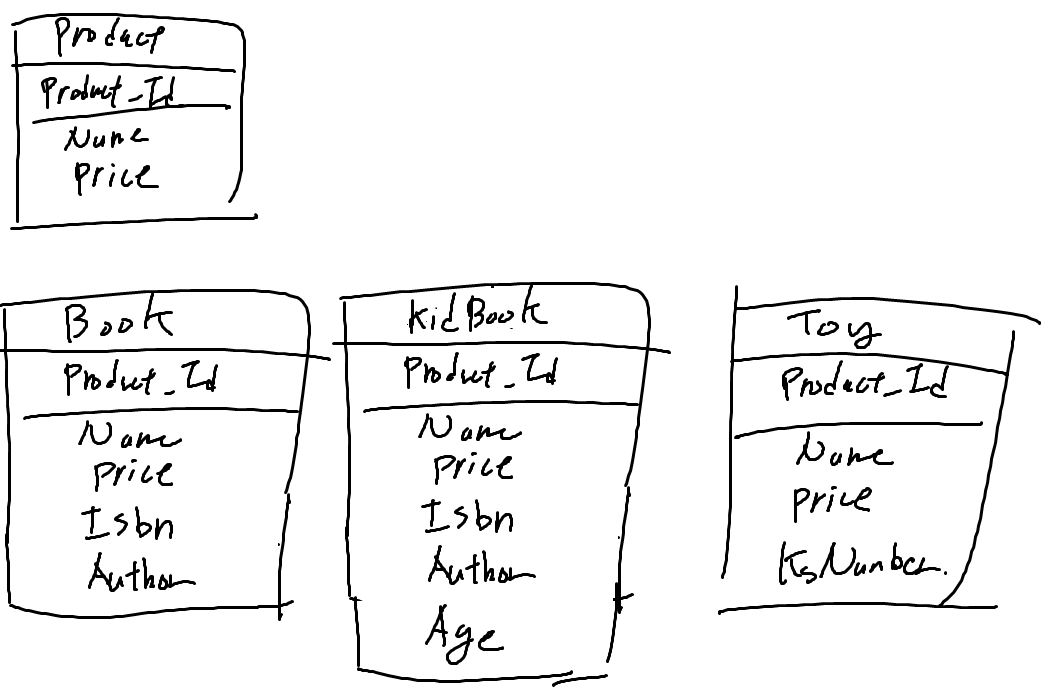 Product
Product_Id
Name
Price
Book
Product_Id
Name
Price
Isbn
Author
KidBook
Product_Id
Name
Price
Isbn
Author
Age
Toy
Product_Id
Name
Price
KsNumber.